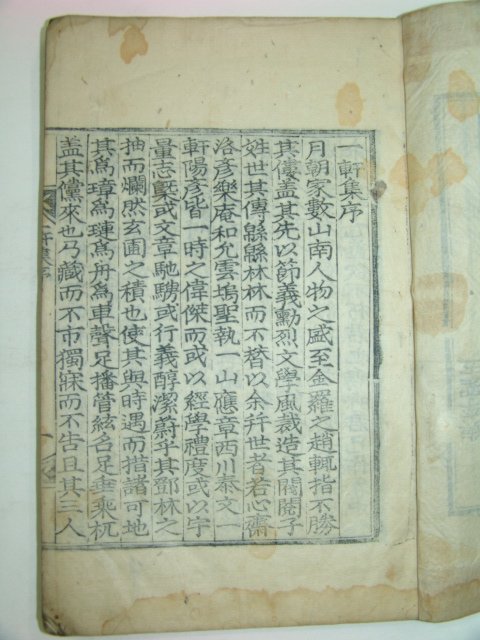 一軒集序
月朝家數山南人物之盛至金羅之趙輒指不勝
其僂盖其先以節義勳烈文學風裁造其閥閱子
姓世其傳緜緜林林而不替以余幷世者若心齋
洛彦樂庵和允雲塢聖執一山應章西川泰文一
軒陽彦皆一時之偉傑而或以經學禮度或以宇
量志槩或文章馳騁或行義醇潔蔚乎其鄧林之
抽而爛然玄圃之積也使其與時遇而措諸可地
其爲璋爲璉爲舟爲車聲足播管絃名足垂乘杌
盖其儻來也乃藏而不市獨寐而不告且其三人
一軒集序
一